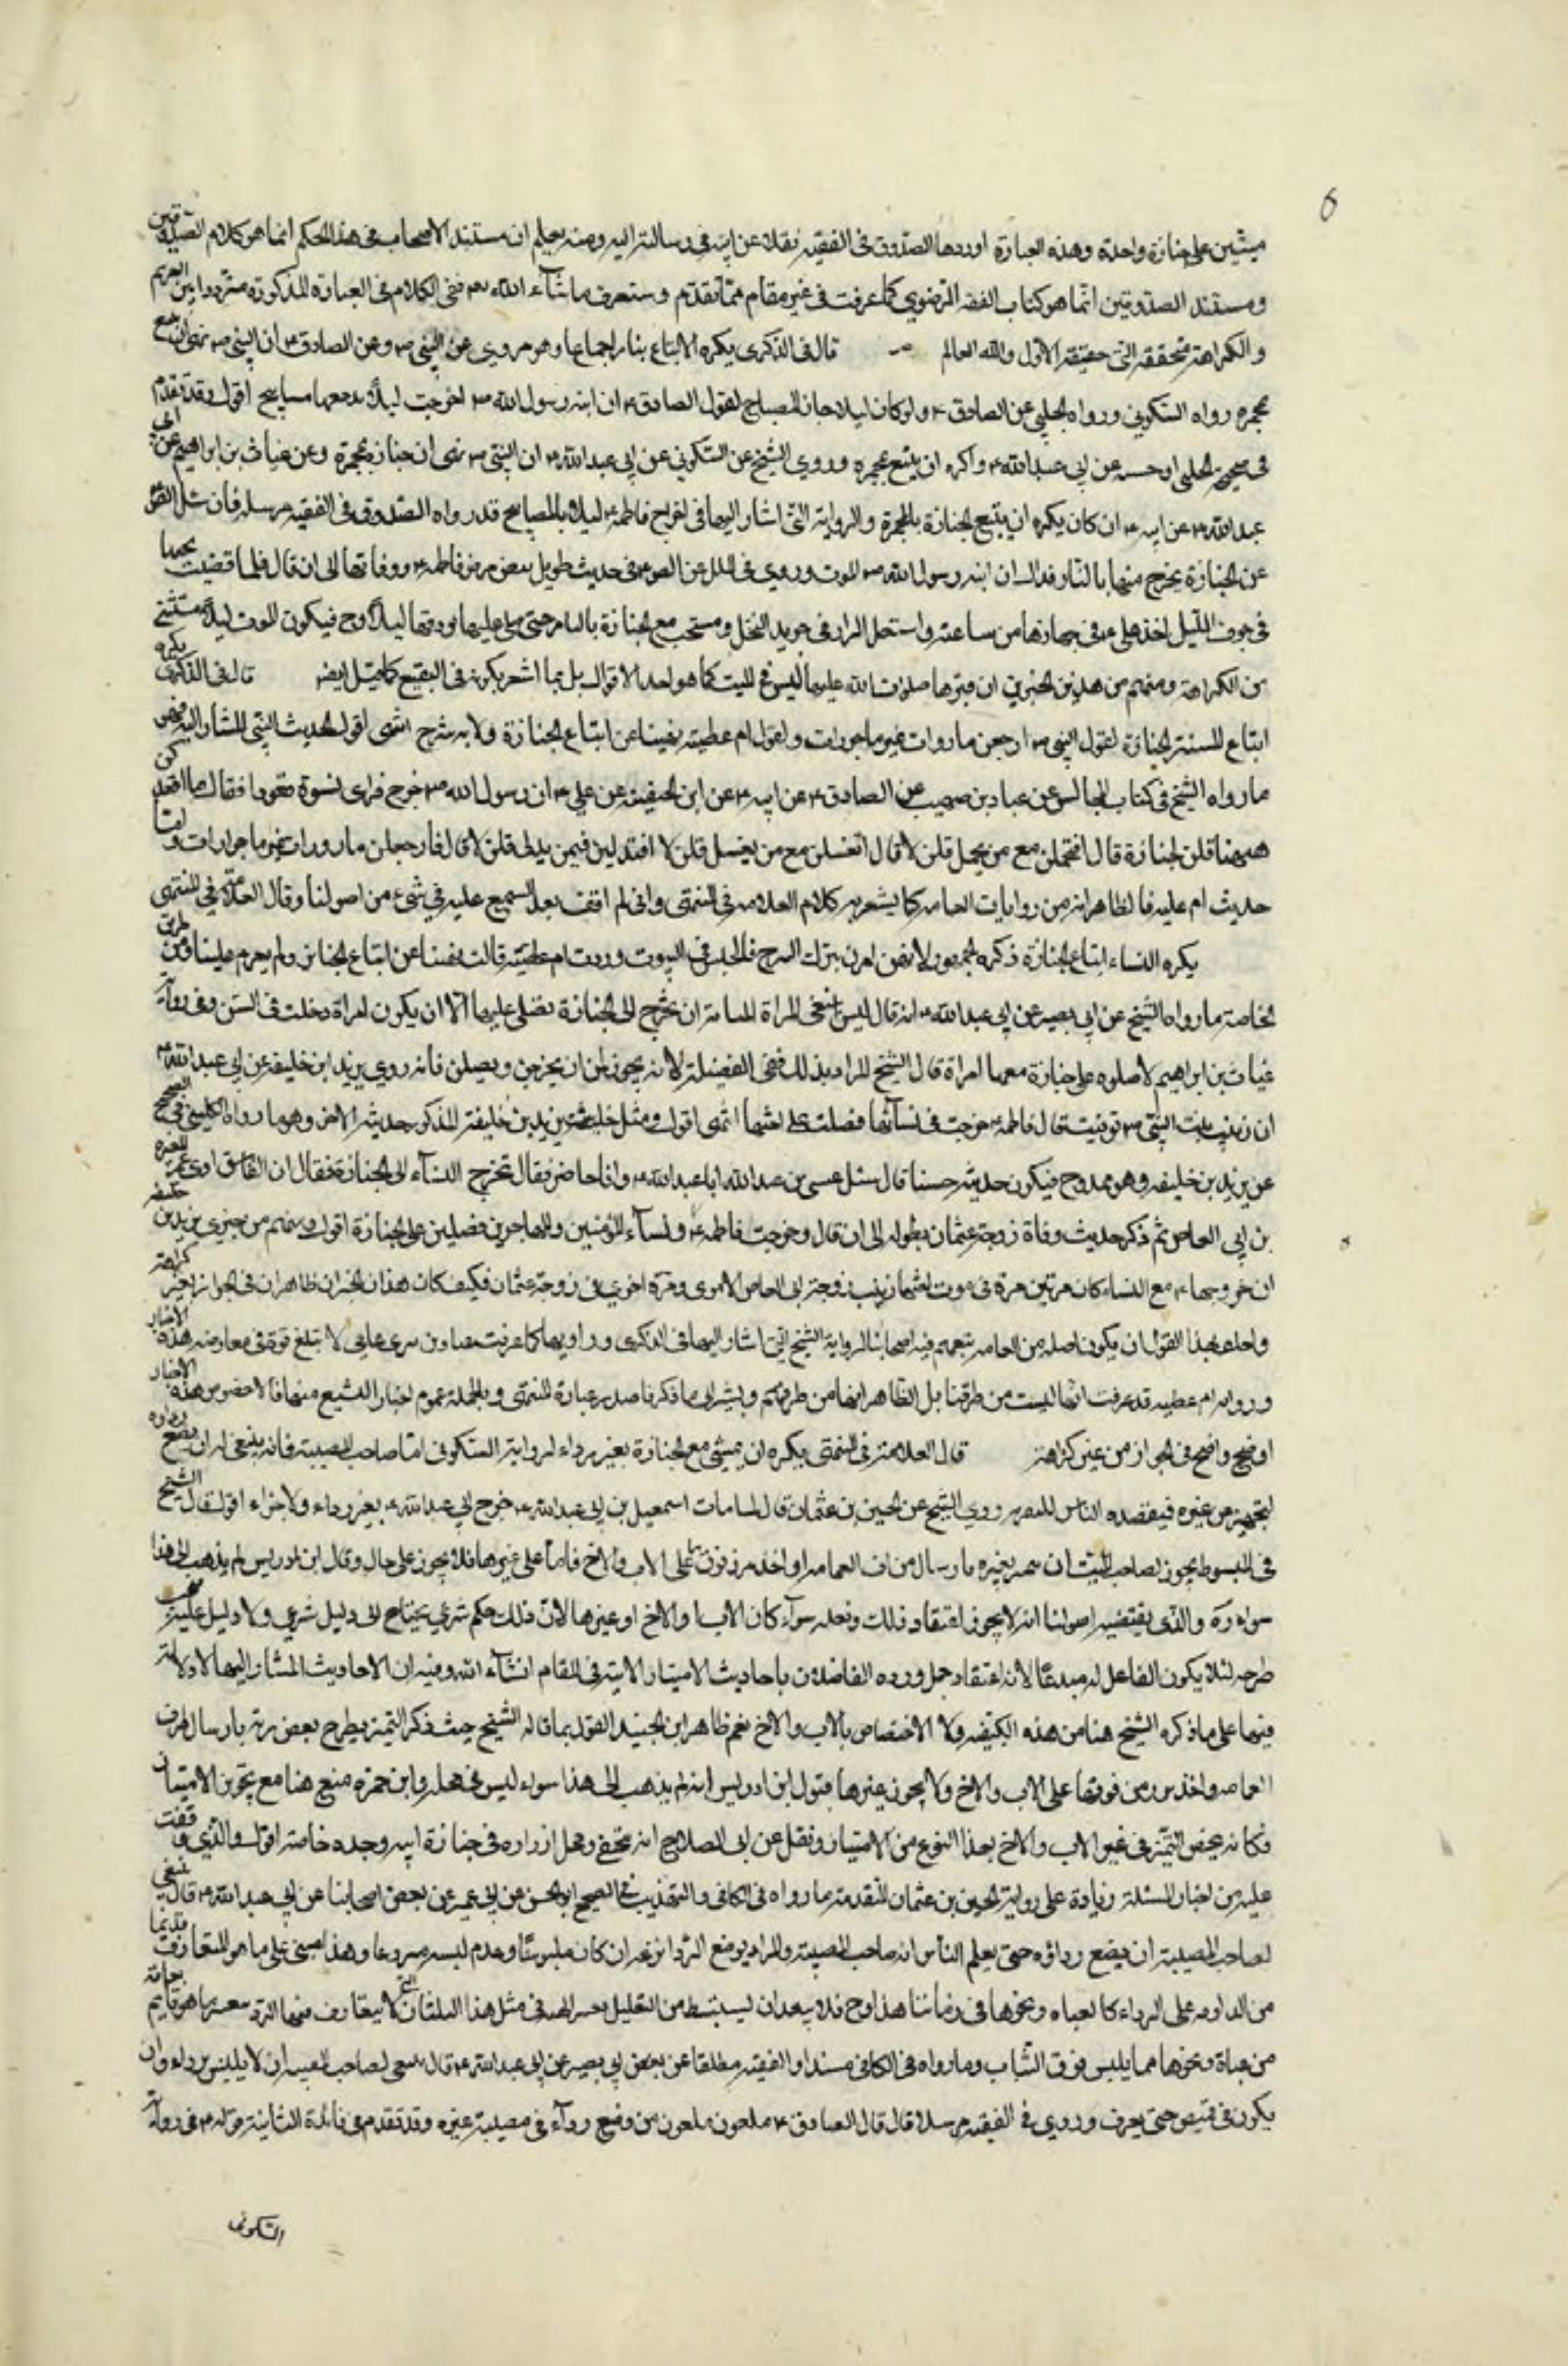 ميتين على جنازة واحدة وهذه العبارة اوردها الصدوق فى الفقيه نقلا عن ابيه فى رسالته اليه ومنه يعلم ان مستند الاصحاب فى هذا الحكم انما هو كلام الصدوقين
ومستند الصدوقين انما هو كتاب الفقه الرضوي كما عرفت فى غير مقام مما تقدم وستعرف ما شاء الله بقي الكلام فى العبارة المذكورة بين التحريم
والكراهة والله العالم قال فى الذكرى يكره الاتباع بنار اجماعا وهو مروي عن النبي ص وعن الصادق ع ان النبي ص نهى ان تتبع
بمجمرة رواه السكوني ورواه الحلبي عن الصادق ع ولو كان ليلا جاز المصباح لقول الصادق ع ان ابنة رسول الله ص اخرجت ليلا ومعها مصابيح اقول وقد تقدم
فى صحيح الحلبي او حسنه عن ابي عبد الله ع واكره ان يتبع بمجمرة وروى الشيخ عن السكوني عن ابي عبد الله ع ان النبي ص نهى ان تتبع جنازة بمجمرة وعن غياث بن ابراهيم عن ابي
عبد الله ع عن ابيه ع انه كان يكره ان يتبع الجنازة بالمجمرة والرواية التى اشار اليها فى اخراج فاطمة ع ليلا بالمصابيح قد رواه الصدوق فى الفقيه مرسلا قال سئل الصادق
عن الجنازة يخرج معها بالنار فقال ان ابنة رسول الله ص وروي فى العلل عن الصادق ع فى حديث طويل يتضمن مرض فاطمة ع ووفاتها الى ان قال فلما قضيت نحبها
فى جوف الليل اخذ علي ع فى جهازها من ساعته واشعل النار فى جريد النخل ومشى مع الجنازة بالنار حتى صلى عليها ودفنها ليلا وح فيكون الموت ليلا مستثنى
من الكراهة ومنهم من هذين الخبرين ان قبرها صلوات الله عليها ليس فى البيت كما هو احد الاقوال بل ربما اشعر بكونه فى البقيع كما قيل ايضا قال فى الذكرى يكره
اتباع النساء الجنازة لقول النبي ص ارجعن مازورات غير ماجورات ولقول ام عطية نهينا عن اتباع الجنازة ولانه تبرج انتهى اقول الحديث النبوي المشار اليه هو
ما رواه الشيخ فى كتاب المجالس عن عباد بن صهيب عن الصادق ع عن ابيه ع عن ابن الحنفية عن علي ع ان رسول الله ص خرج فراى نسوة قعودا فقال ما اقعدكن
ههنا قلن لجنازة قال افتحملن مع من يحمل قلن لا قال اتغسلن مع من يغسل قلن لا قال افتدلين فيمن يدلي قلن لا قال فارجعن مازورات غير ماجورات واما
حديث ام عطية فالظاهر انه من روايات العامة كما يشعر به كلام العلامة فى المنتهى واني لم اقف بعد التتبع عليه في شيء من اصولنا وقال العلامة في المنتهى
يكره للنساء اتباع الجنازة ذكره الجمهور لانهن امرن بترك التبرج والجلوس فى البيوت وروت ام عطية قالت نهينا عن اتباع الجنائز ولم يعزم علينا ومن طريق
الخاصة ما رواه الشيخ عن ابي بصير عن ابي عبد الله ع انه قال ليس ينبغي للمراة الشابة ان تخرج الى الجنازة تصلي عليها الا ان يكون امراة دخلت فى السن وفى رواية
غياث بن ابراهيم لا صلوة على جنازة معها امراة قال الشيخ المراد بذلك نفى الفضيلة لانه يجوز لهن ان يخرجن ويصلين فانه روي يزيد ابن خليفة عن ابي عبد الله ع
ان زينب بنت النبي ص توفيت قال فاطمة ع خرجت فى نسائها فصلت على اختها انتهى اقول ومثل حديث يزيد بن خليفة المذكور حديثه الاخر وهو ما رواه الكليني فى الصحيح
عن يزيد بن خليفة وهو ممدوح فيكون حديثه حسنا قال سئل عيسى بن عبد الله ابا عبد الله ع وانا حاضر فقال تخرج النساء الى الجنازة فقال ان الفاسق اوى عمه المغيرة
بن ابي العاص ثم ذكر حديث وفاة زوجة عثمان بطوله الى ان قال وخرجت فاطمة ع ونساء المؤمنين والمهاجرين فصلين على الجنازة اقول ويفهم من خبري يزيد بن خليفة
ان خروجها ع مع النساء كان مرتين مرة فى موت اختها زينب زوجة ابي العاص الاموي ومرة اخرى فى زوجة عثمان فكيف كان هذان الخبران ظاهران فى الجواز بغير كراهة
ولعل هذا القول ان يكون اصله من العامة تبعهم فيه اصحابنا والرواية التى اشار اليها فى الذكرى وراويها كما عرفت عامي لا تبلغ قوة فى معارضة هذه الاخبار
ورواية ام عطية قد عرفت انها ليست من طرقنا بل الظاهر انها من طرقهم ويشير الى ما ذكرنا صدر عبارة المنتهى وبالجملة عموم اخبار التشييع منها وخصوص هذه الاخبار
اوضح واضح فى الجواز من غير كراهة قال العلامة فى المنتهى يكره ان يمشي مع الجنازة بغير رداء لرواية السكوني اما صاحب المصيبة فانه ينبغي له ان يضع رداءه
ليتميز من غيره فيقصده الناس للتعزية روى الشيخ عن الحسين بن عثمان قال لما مات اسمعيل بن ابي عبد الله ع خرج ابي عبد الله ع بغير رداء ولا حذاء اقول قال الشيخ
فى المبسوط يجوز لصاحب الميت ان يتميز من غيره بارسال طرف العمامة او اخذ مئزر فوقها على الاب والاخ فاما على غيرهما فلا يجوز على حال وقال ابن ادريس لم يذهب الى هذا
سواه ره والذي يقتضيه اصولنا انه لا يجوز اعتقاد ذلك وفعله سواء كان الاب او الاخ او غيرهما لان ذلك حكم شرعي يحتاج الى دليل شرعي ولا دليل عليه فيجب
طرحه لئلا يكون الفاعل له مبدعا لانه اعتقاد جهل ورده الفاضلان باحاديث الامتياز الاتية فى المقام انشاء الله وفيه ان الاحاديث المشار اليها لا دلالة
فيها على ما ذكره الشيخ هنا من هذه الكيفية ولا الاختصاص بالاب والاخ نعم ظاهر ابن الجنيد القول بما قاله الشيخ حيث ذكر التميز بطرح بعض زيه بارسال طرف
العمامة واخذ مئزر من فوقها على الاب والاخ ولا يجوز غيرها فقول ابن ادريس انه لم يذهب الى هذا سواه ليس فى محله وابن حمزة منع هنا مع تجويز الامتياز
فكانه يخص التميز فى غير الاب والاخ بهذا النوع من الامتياز ونقل عن ابى الصلاح انه يتحفى ويحل ازراره فى جنازة ابيه وجده خاصة اقول والذي وقفت
عليه من اخبار المسئلة زيادة على رواية الحسين بن عثمان المتقدمة ما رواه فى الكافي والتهذيب فى الصحيح او الحسن عن ابن ابي عمير عن بعض اصحابنا عن ابي عبد الله ع قال ينبغي
لصاحب المصيبة ان يضع رداؤه حتى يعلم الناس انه صاحب المصيبة والمراد بوضع الرداء نزعه ان كان ملبوسا وعدم لبسه وهذا مبني على ما هو المتعارف قديما
من المداومة على الرداء كالعباء ونحوها فى زماننا هذا وح فلا يبعد ان يستنبط من التعليل فى مثل هذا البلدان التي لا يتعارف فيها الرداء
من عباة ونحوها مما يلبس فوق الثياب وما رواه فى الكافي مسندا والفقيه مطلقا عن بعض ابي بصير عن ابي عبد الله ع قال ينبغي لصاحب المصيبة ان لا يلبس رداء وان
يكون فى قميص حتى يعرف وروي فى الفقيه مرسلا قال قال الصادق ع ملعون ملعون من وضع رداءه فى مصيبة غيره وقد تقدم فى فائدة الثانية قوله ع فى رواية
السكوني